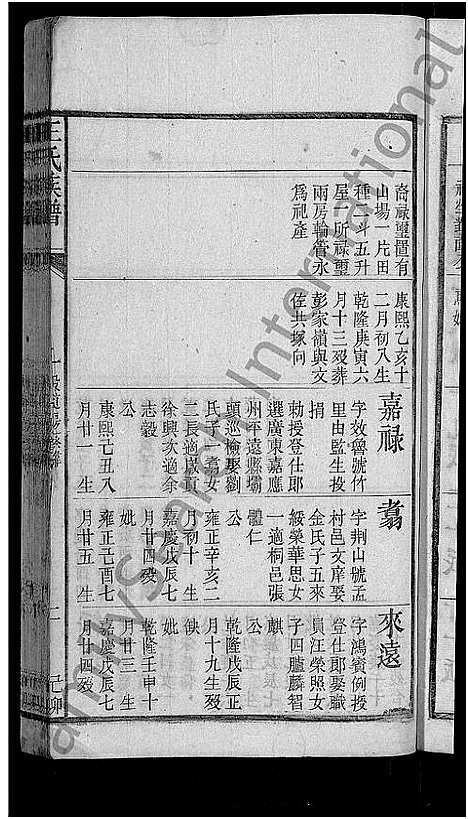 王氏族譜
裔祿璽置有
山場一片田
種二斗五升
屋一所祿璽
兩房輪管永
為祀產
康熙乙亥十
二月初八生
乾隆庚寅六
月十三歿葬
彭家嶺與文
佐共塚向
嘉祿
字效魯號竹
里由監生投
捐
勅授登仕郎
選廣東嘉應
州平遠縣壩
頭巡檢娶劉
氏子一翥女
二長適咸寧
徐興次適余
志毅
公
康熙己丑八
月廿一生
翥
字荆山號孟
村邑文庠娶
金氏子五來
綏榮華思女
一適桐邑張
體仁
公
雍正辛亥二
月初十生
嘉慶戊辰七
月廿四歿
妣
雍正己酉七
月廿五生
來遠
字鴻賓例授
登仕郎娶職
員汪榮照女
子四臚麟智
麒
公
乾隆戊辰正
月十九生歿
缺
妣
乾隆壬申十
月廿三生
嘉慶戊辰七
月廿四歿
二
己卯
FamilySearch International